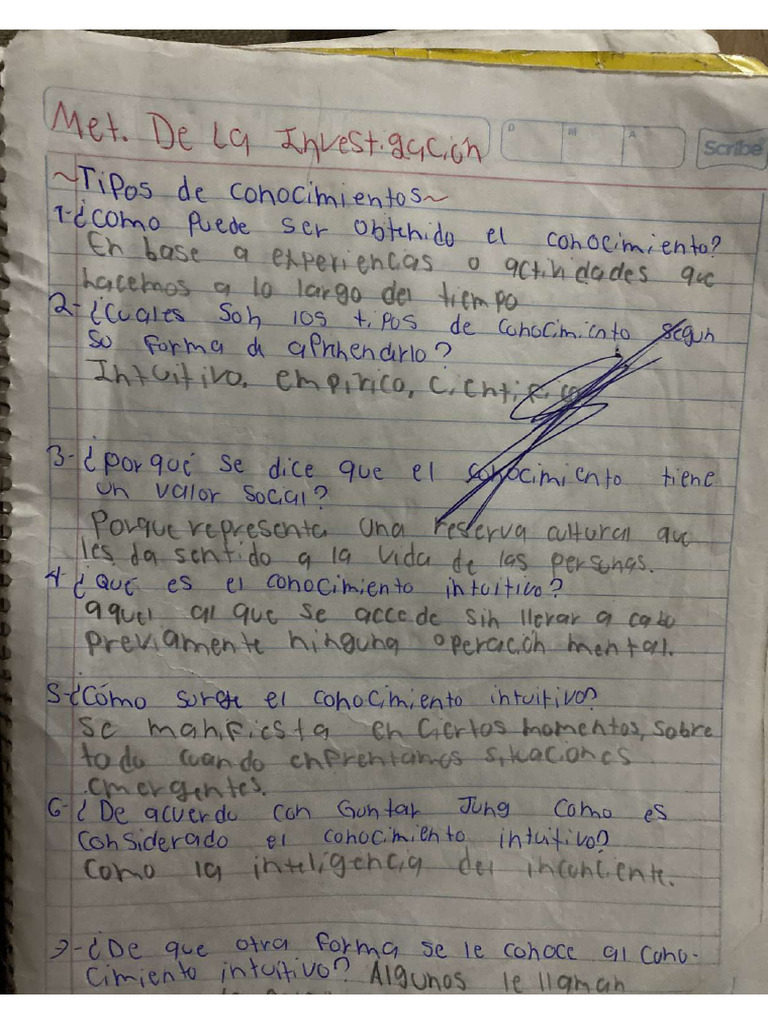 Met. De La Investigación
D M A
Scribe
~Tipos de conocimientos~
1-¿como puede ser obtenido el conocimiento?
En base a experiencas o actividades que
hacemos a lo largo del tiempo
2-¿cuales son los tipos de conocimiento segun
su forma de aprhenderlo?
Intuitivo, empirico, cientifico
3-¿porqué se dice que el conocimiento tiene
un valor social?
Porque representa una reserva cultural que
les da sentido a la vida de las personas.
4-¿qué es el conocimiento intuitivo?
aquel al que se accede sin llevar a cabo
previamente ninguna operación mental.
5-¿Cómo surge el conocimiento intuitivo?
se manifiesta en ciertos momentos, sobre
todo cuando enfrentamos situaciones
emergentes.
6-¿De acuerdo con Guntar Jung como es
considerado el conocimiento intuitivo?
como la inteligencia del inconciente.
7-¿De que otra forma se le conoce al cono-
cimiento intuitivo? Algunos le llaman